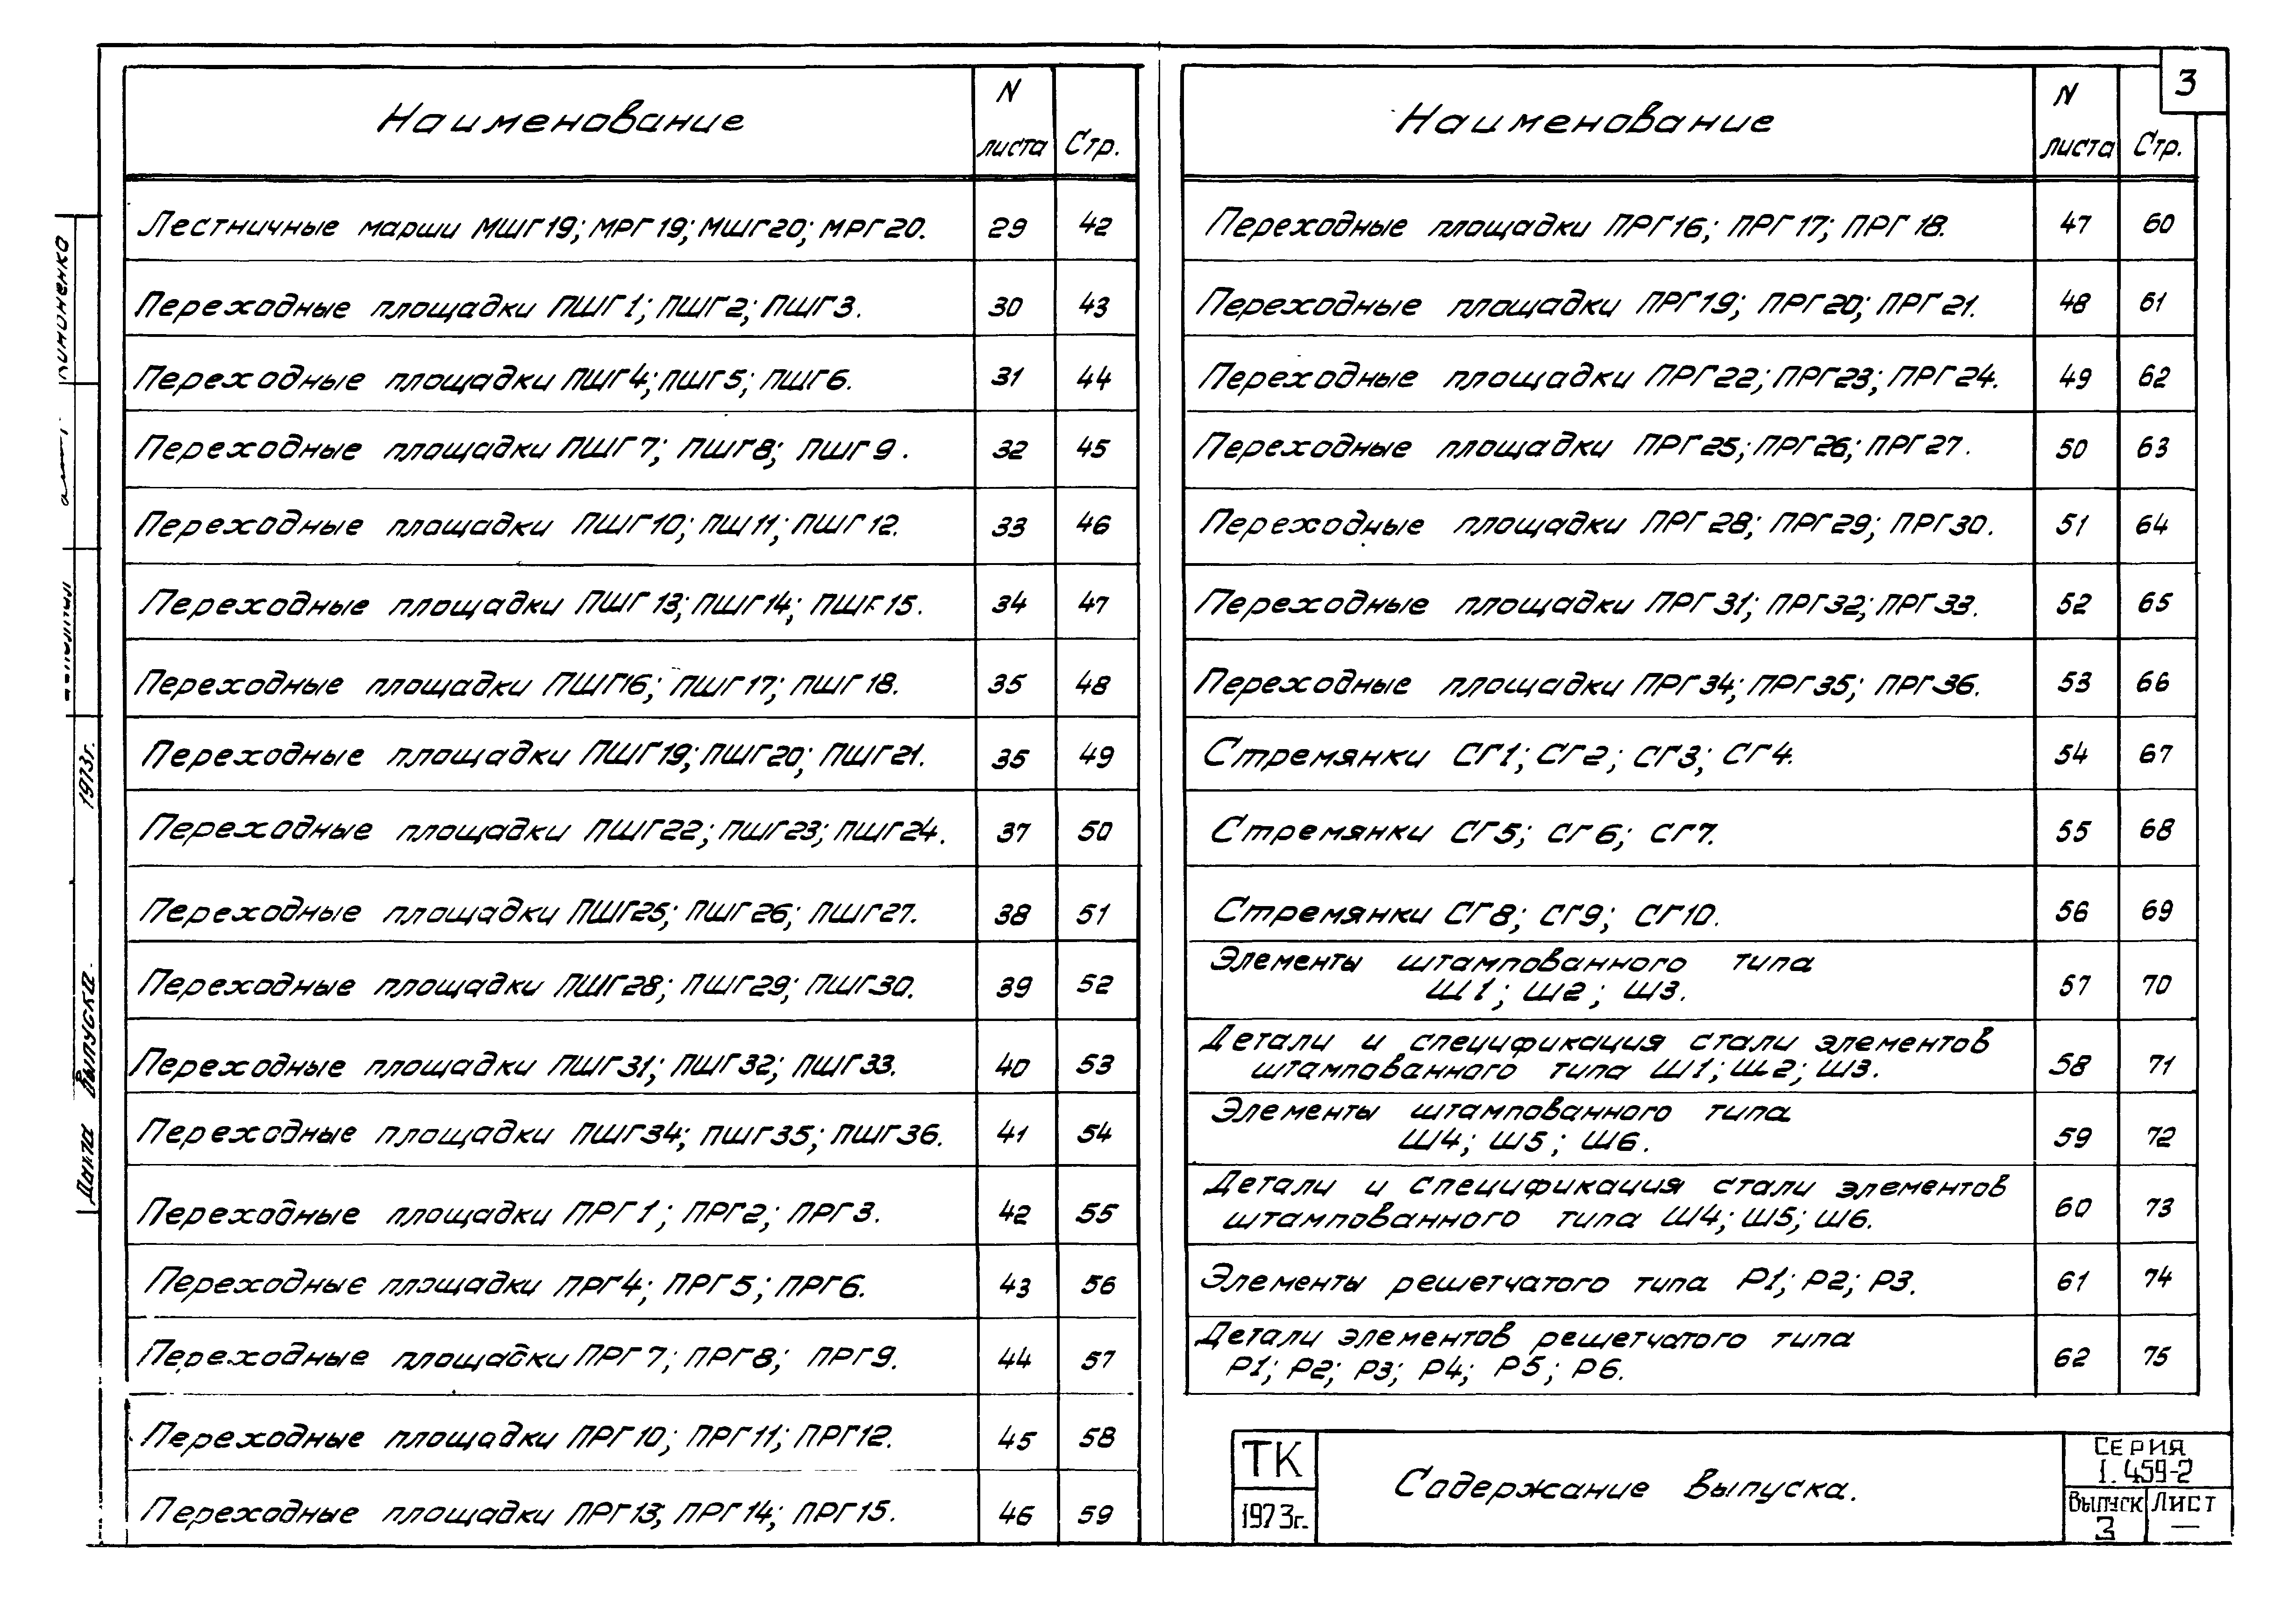 3
Наименование N листа Стр.
Лестничные марши МШГ19; МРГ19; МШГ20; МРГ20. 29 42
Переходные площадки ПШГ1; ПШГ2; ПШГ3. 30 43
Переходные площадки ПШГ4; ПШГ5; ПШГ6. 31 44
Переходные площадки ПШГ7; ПШГ8; ПШГ9. 32 45
Переходные площадки ПШГ10; ПШ11; ПШГ12. 33 46
Переходные площадки ПШГ13; ПШГ14; ПШГ15. 34 47
Переходные площадки ПШГ16; ПШГ17; ПШГ18. 35 48
Переходные площадки ПШГ19; ПШГ20; ПШГ21. 35 49
Переходные площадки ПШГ22; ПШГ23; ПШГ24. 37 50
Переходные площадки ПШГ25; ПШГ26; ПШГ27. 38 51
Переходные площадки ПШГ28; ПШГ29; ПШГ30. 39 52
Переходные площадки ПШГ31; ПШГ32; ПШГ33. 40 53
Переходные площадки ПШГ34; ПШГ35; ПШГ36. 41 54
Переходные площадки ПРГ1; ПРГ2; ПРГ3. 42 55
Переходные площадки ПРГ4; ПРГ5; ПРГ6. 43 56
Переходные площадки ПРГ7; ПРГ8; ПРГ9. 44 57
Переходные площадки ПРГ10; ПРГ11; ПРГ12. 45 58
Переходные площадки ПРГ13; ПРГ14; ПРГ15. 46 59
Наименование N листа Стр.
Переходные площадки ПРГ16; ПРГ17; ПРГ18. 47 60
Переходные площадки ПРГ19; ПРГ20; ПРГ21. 48 61
Переходные площадки ПРГ22; ПРГ23; ПРГ24. 49 62
Переходные площадки ПРГ25; ПРГ26; ПРГ27. 50 63
Переходные площадки ПРГ28; ПРГ29; ПРГ30. 51 64
Переходные площадки ПРГ31; ПРГ32; ПРГ33. 52 65
Переходные площадки ПРГ34; ПРГ35; ПРГ36. 53 66
Стремянки СГ1; СГ2; СГ3; СГ4. 54 67
Стремянки СГ5; СГ6; СГ7. 55 68
Стремянки СГ8; СГ9; СГ10. 56 69
Элементы штампованного типа
Ш1; Ш2; Ш3. 57 70
Детали и спецификация стали элементов
штампованного типа Ш1; Ш2; Ш3. 58 71
Элементы штампованного типа
Ш4; Ш5; Ш6. 59 72
Детали и спецификация стали элементов
штампованного типа Ш4; Ш5; Ш6. 60 73
Элементы решетчатого типа Р1; Р2; Р3. 61 74
Детали элементов решетчатого типа
Р1; Р2; Р3; Р4; Р5; Р6. 62 75
ТК
1973г.
Содержание выпуска.
Серия
1.459-2
Выпуск Лист
3 —
Дата выпуска. 1973г.